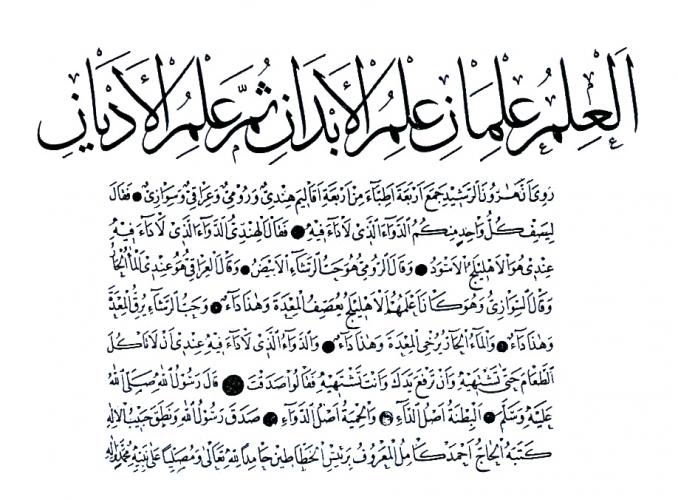 العلم علمان علم الأبدان ثم علم الأديان
روى أن هرون الرشيد جمع أربعة أطباء من أربعة أقاليم هندي ورومي وعراقي وسوادي فقال
ليصف كل واحد منكم الدواء الذي لا داء فيه فقال الهندي الدواء الذي لا داء فيه
عندي هو الاهليلج الاسود وقال الرومي هو حب الرشاء الأبيض وقال العراقي هو عندي الماء الحار
وقال السوادي وهو كان أعلمهم الاهليلج يعصف المعدة وهذا داء وحب الرشاء يرق المعدة
وهذا داء والماء الحار يرخي المعدة وهذا داء والدواء الذي لا داء فيه عندي أن لا تأكل
الطعام حتى تشتهيه وأن ترفع يدك وأنت تشتهيه فقالوا صدقت قال رسول الله صلى الله
عليه وسلم البطنة أصل الداء والحمية أصل الدواء صدق رسول الله ونطق حبيب الاله
كتبه الحاج احمد كامل المعروف برئيس الخطاطين حامدا لله تعالى ومصليا على نبيه محمد وآله